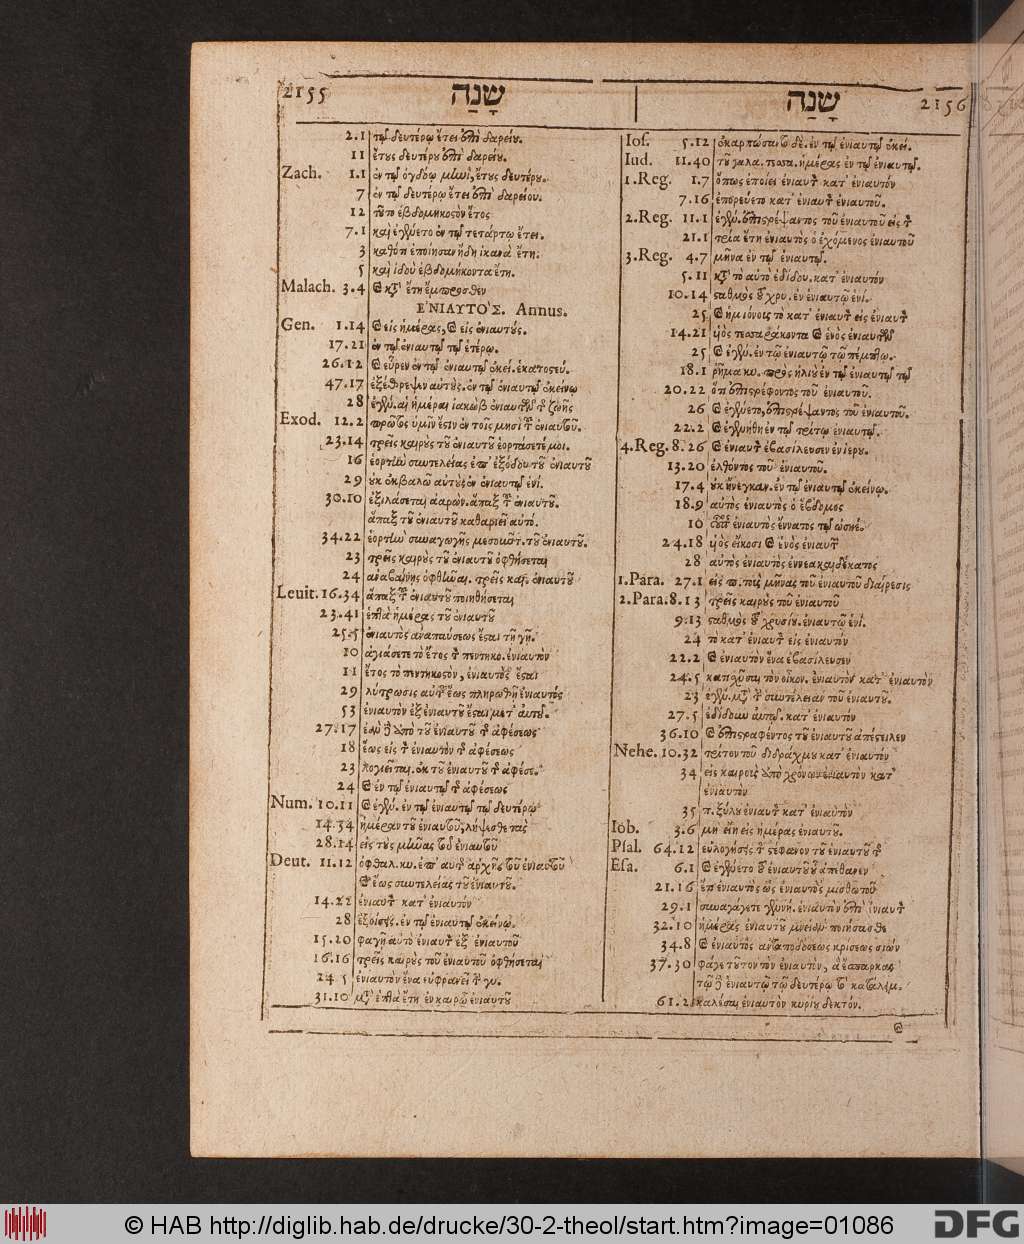 2155 שָׁנָה
2.1 τῷ δευτέρῳ ἔτει ἐπὶ δαρείου.
11 ἔτους δευτέρου ἐπὶ δαρείου.
Zach. 1.1 ἐν τῷ ὀγδόῳ μηνὶ, ἔτους δευτέρου.
7 ἐν τῷ δευτέρῳ ἔτει ἐπὶ δαρείου.
12 τοῦτο ἑβδομηκοστὸν ἔτος
7.1 καὶ ἐγένετο ἐν τῷ τετάρτῳ ἔτει.
3 καθότι ἐποίησαν ἤδη ἱκανὰ ἔτη.
5 καὶ ἰδοὺ ἑβδομήκοντα ἔτη.
Malach. 3.4 καὶ κατ' ἔτη ἔμπροσθεν
ΕΝΙΑΥΤΟΣ. Annus.
Gen. 1.14 καὶ εἰς ἡμέρας, καὶ εἰς ἐνιαυτούς.
17.21 ἐν τῷ ἐνιαυτῷ τῷ ἑτέρῳ.
26.12 καὶ εὗρεν ἐν τῷ ἐνιαυτῷ ἐκεί. ἑκατοστεύ.
47.17 ἐξέθρεψεν αὐτοὺς. ἐν τῷ ἐνιαυτῷ ἐκείνῳ
28 ἐγέν. αἱ ἡμέραι ἰακὼβ ἐνιαυτῶν τῆς ζωῆς
Exod. 12.2 πρῶτος ὑμῖν ἐστιν ἐν τοῖς μησὶ τοῦ ἐνιαυτοῦ.
23.14 τρεῖς καιροὺς τοῦ ἐνιαυτοῦ ἑορτάσετέ μοι.
16 ἑορτὴν συντελείας ἐπ' ἐξόδου τοῦ ἐνιαυτοῦ
29 οὐκ ἐκβαλῶ αὐτοὺς ἐν ἐνιαυτῷ ἑνί.
30.10 ἐξιλάσεται ἀαρὼν. ἅπαξ τοῦ ἐνιαυτοῦ.
ἅπαξ τοῦ ἐνιαυτοῦ καθαριεῖ αὐτό.
34.22 ἑορτὴν συναγωγῆς μεσοῦντ. τοῦ ἐνιαυτοῦ.
23 τρεῖς καιροὺς τοῦ ἐνιαυτοῦ ὀφθήσεται
24 ἀναβαίνῃς ὀφθῆναι. τρεῖς και. ἐνιαυτοῦ
Leuit. 16.34 ἅπαξ τοῦ ἐνιαυτοῦ ποιηθήσεται
23.41 ἑπτὰ ἡμέρας τοῦ ἐνιαυτοῦ
25.5 ἐνιαυτὸς ἀναπαύσεως ἔσται τῇ γῇ.
10 ἁγιάσετε τὸ ἔτος τὸ πεντηκο. ἐνιαυτὸν
11 ἔτος τὸ πεντηκοστὸν, ἐνιαυτὸς ἔσται
29 λύτρωσις αὐτῆς ἕως πληρωθῇ ἐνιαυτός
53 ἐνιαυτὸν ἐξ ἐνιαυτοῦ ἔσται μετ' αὐτοῦ.
27.17 ἐὰν δὲ ἀπὸ τοῦ ἐνιαυτοῦ τῆς ἀφέσεως
18 ἕως εἰς τὸν ἐνιαυτὸν τῆς ἀφέσεως
23 λογιεῖται. ἐκ τοῦ ἐνιαυτοῦ τῆς ἀφέσε.
24 καὶ ἐν τῷ ἐνιαυτῷ τῆς ἀφέσεως
Num. 10.11 καὶ ἐγέν. ἐν τῷ ἐνιαυτῷ τῷ δευτέρῳ
14.34 ἡμέραν τοῦ ἐνιαυτοῦ, λήψεσθε τὰς
28.14 εἰς τοὺς μῆνας τοῦ ἐνιαυτοῦ
Deut. 11.12 ὀφθαλ. κυ. ἐπ' αὐτῆς ἀρχῆς τοῦ ἐνιαυτοῦ
καὶ ἕως συντελείας τοῦ ἐνιαυτοῦ.
14.22 ἐνιαυτὸν κατ' ἐνιαυτόν
28 ἐξοίσεις. ἐν τῷ ἐνιαυτῷ ἐκείνῳ.
15.20 φαγῇ αὐτὸ ἐνιαυτὸν ἐξ ἐνιαυτοῦ
16.16 τρεῖς καιροὺς τοῦ ἐνιαυτοῦ ὀφθήσεται
24.5 ἐνιαυτὸν ἕνα εὐφρανεῖ τὴν γυ.
31.10 μετὰ ἑπτὰ ἔτη ἐν καιρῷ ἐνιαυτοῦ
שָׁנָה 2156
Ios. 5.12 ἐκαρπώσαντο δὲ. ἐν τῷ ἐνιαυτῷ ἐκεί.
Iud. 11.40 τοῦ γαλα. τέσσα. ἡμέρας ἐν τῷ ἐνιαυτῷ.
1.Reg. 1.7 ὅπως ἐποίει ἐνιαυτὸν κατ' ἐνιαυτόν
7.16 ἐπορεύετο κατ' ἐνιαυτὸν ἐνιαυτοῦ.
2.Reg. 11.1 ἐγέν. ἐπιστρέψαντος τοῦ ἐνιαυτοῦ εἰς τὸν
21.1 τρία ἔτη ἐνιαυτὸς ὁ ἐχόμενος ἐνιαυτοῦ
3.Reg. 4.7 μῆνα ἐν τῷ ἐνιαυτῷ.
5.11 κατὰ τὸ αὐτὸ ἐδίδου. κατ' ἐνιαυτόν
10.14 σταθμὸς τοῦ χρυ. ἐν ἐνιαυτῷ ἑνί.
25 καὶ ἡμιόνους τὸ κατ' ἐνιαυτὸν εἰς ἐνιαυτὸν
14.21 υἱὸς τεσσαράκοντα καὶ ἑνὸς ἐνιαυτῶν
25 καὶ ἐγέν. ἐν τῷ ἐνιαυτῷ τῷ πέμπτῳ.
18.1 ῥῆμα κυ. πρὸς ἠλιοὺ ἐν τῷ ἐνιαυτῷ τῷ
20.22 ὅτι ἐπιστρέφοντος τοῦ ἐνιαυτοῦ.
26 καὶ ἐγένετο, ἐπιστρέψαντος τοῦ ἐνιαυτοῦ.
22.2 καὶ ἐγενήθη ἐν τῷ τρίτῳ ἐνιαυτῷ.
4.Reg. 8.26 καὶ ἐνιαυτὸν ἐβασίλευσεν ἐν ἱερου.
13.20 ἐλθόντος τοῦ ἐνιαυτοῦ.
17.4 οὐκ ἤνεγκαν. ἐν τῷ ἐνιαυτῷ ἐκείνῳ.
18.9 αὐτὸς ἐνιαυτὸς ὁ ἕβδομος
10 οὗτος ἐνιαυτὸς ἔννατος τῷ ὡσηέ.
24.18 υἱὸς εἴκοσι καὶ ἑνὸς ἐνιαυτοῦ
28 αὐτὸς ἐνιαυτὸς ἐννεακαιδέκατος
1.Para. 27.1 εἰς π. τοὺς μῆνας τοῦ ἐνιαυτοῦ διαίρεσις
2.Para. 8.13 τρεῖς καιροὺς τοῦ ἐνιαυτοῦ
9.13 σταθμὸς τοῦ χρυσίου. ἐνιαυτῷ ἑνί.
24 τὸ κατ' ἐνιαυτὸν εἰς ἐνιαυτόν
22.2 καὶ ἐνιαυτὸν ἕνα ἐβασίλευσεν
24.5 κατισχῦσαι τὸν οἶκον. ἐνιαυτὸν κατ' ἐνιαυτὸν
23 ἐγέν. μετὰ τὴν συντέλειαν τοῦ ἐνιαυτοῦ.
27.5 ἐδίδουν αὐτῷ. κατ' ἐνιαυτόν
36.10 καὶ ἐπιστραφέντος τοῦ ἐνιαυτοῦ ἀπέστειλεν
Nehe. 10.32 τρίτον τοῦ διδράχμου κατ' ἐνιαυτὸν
34 εἰς καιροὺς ἀπὸ χρόνων ἐνιαυτὸν κατ'
ἐνιαυτὸν
35 π. ξύλου ἐνιαυτὸν κατ' ἐνιαυτὸν
Iob. 3.6 μὴ εἴη εἰς ἡμέρας ἐνιαυτοῦ.
Psal. 64.12 εὐλογήσεις τὸν στέφανον τοῦ ἐνιαυτοῦ τῆς
Esa. 6.1 καὶ ἐγένετο τοῦ ἐνιαυτοῦ οὗ ἀπέθανεν
21.16 ἔτι ἐνιαυτὸς ὡς ἐνιαυτὸς μισθωτοῦ
29.1 συναγάγετε γενήμ. ἐνιαυτὸν ἐπὶ ἐνιαυτὸν
32.10 ἡμέρας ἐνιαυτοῦ μνείαν ποιήσασθε
34.8 καὶ ἐνιαυτὸς ἀνταποδόσεως κρίσεως σιών
37.30 φάγε τοῦτον τὸν ἐνιαυτὸν, ἃ ἔσπαρκας
τῷ δὲ ἐνιαυτῷ τῷ δευτέρῳ τὸ κατάλιμ.
61.2 καλέσαι ἐνιαυτὸν κυρίου δεκτόν.
καὶ
© HAB http://diglib.hab.de/drucke/30-2-theol/start.htm?image=01086
DFG